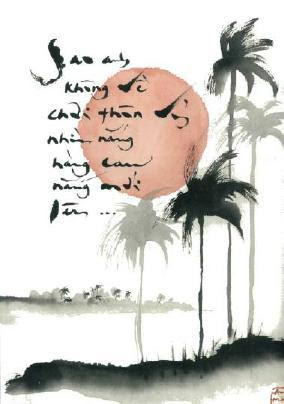 Sao anh
không về
chơi thôn Vỹ
nhìn nắng
hàng cau
nắng mới
lên ...